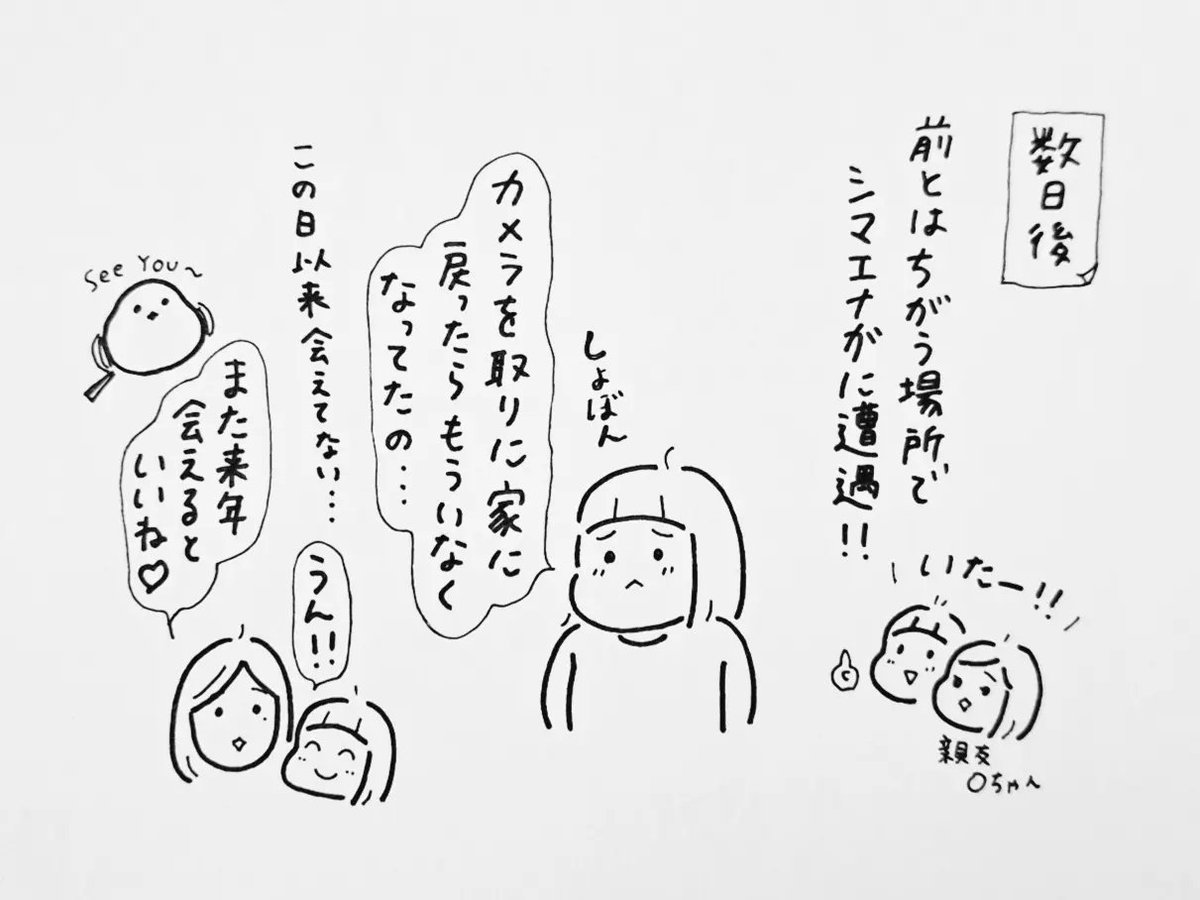 数日後
前とはちがう場所で
シマエナガに遭遇!!
いたー!!
親友
〇ちゃん
しょぼん
カメラを取りに家に
戻ったらもういなく
なってたの...
この日以来会えてない...
うん!!
See You~
また来年
会えると
いいね♡